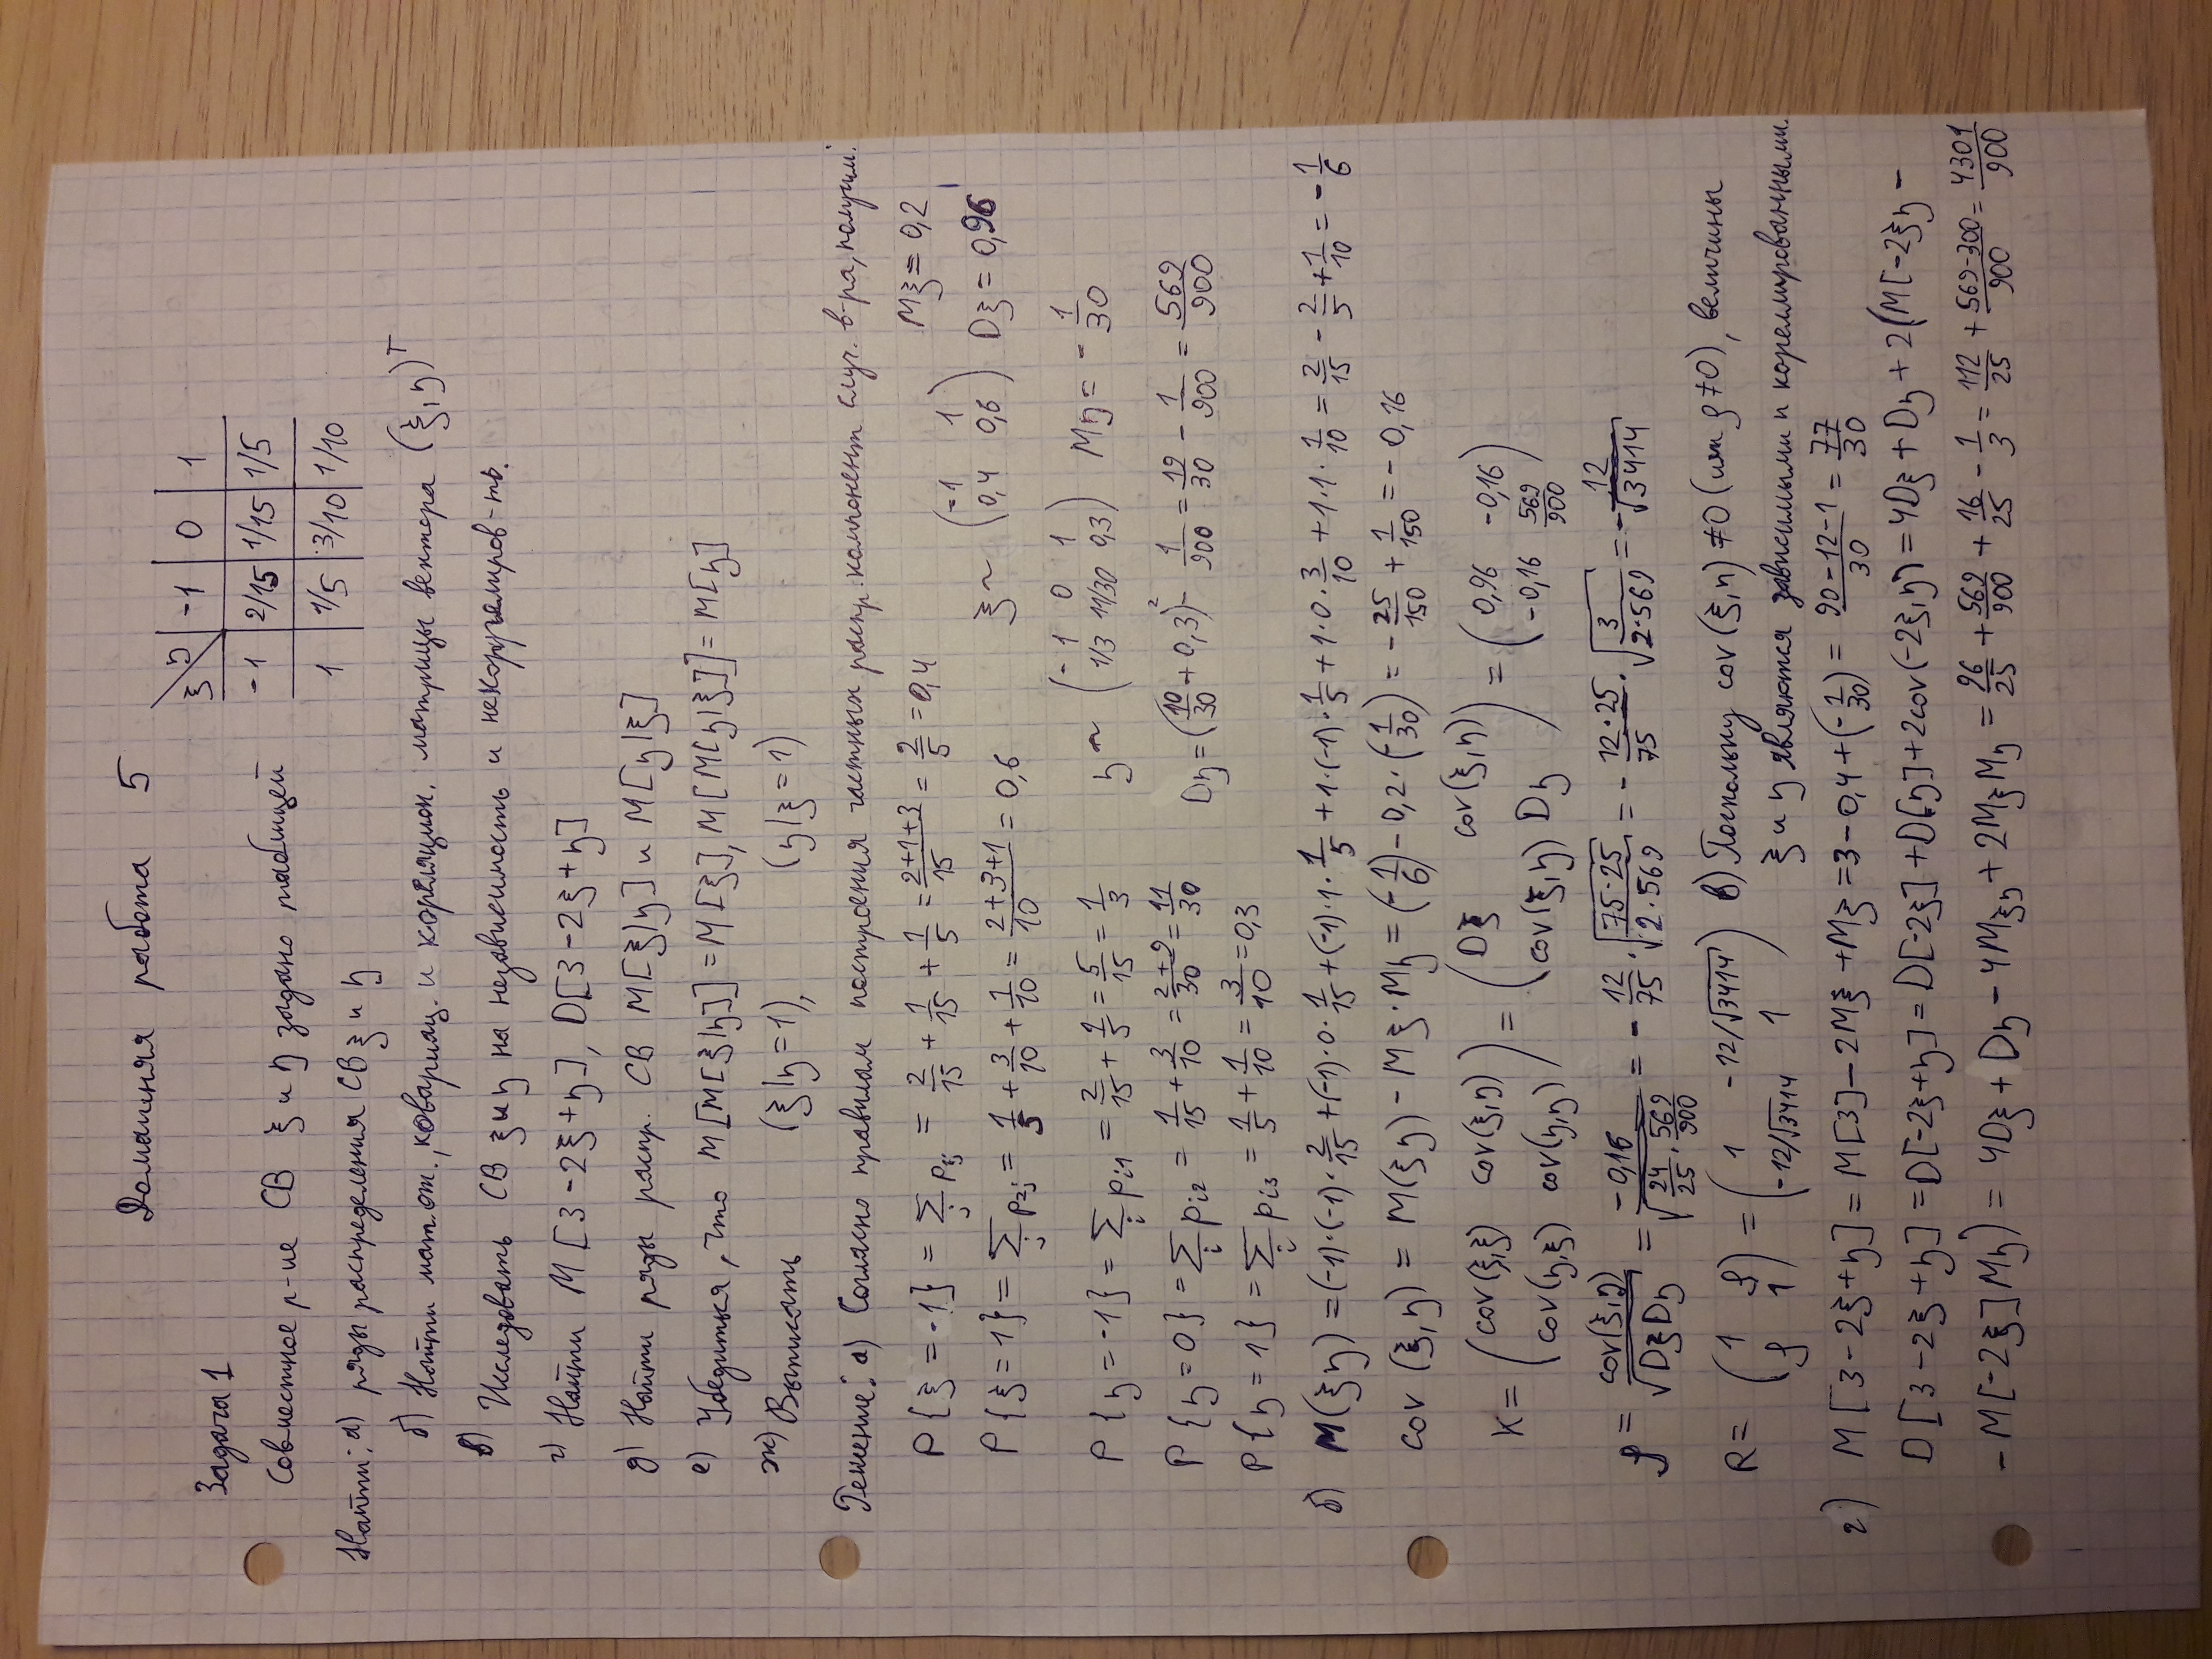 Домашняя работа 5
ξ\η | -1 | 0 | 1
-1 | 2/15 | 1/15 | 1/5
1 | 1/5 | 3/10 | 1/10
Задача 1
Совместное р-ие СВ ξ и η задано таблицей
Найти: а) ряды распределения СВ ξ и η
б) Найти мат. ож., ковариац. и корреляцион. матрицы вектора (ξ, η)^T
в) Исследовать СВ ξ и η на независимость и некоррелиров-ть.
г) Найти M[3-2ξ+η], D[3-2ξ+η]
д) Найти ряды распр. СВ M[ξ|η] и M[η|ξ]
е) Убедиться, что M[M[ξ|η]] = M[ξ], M[M[η|ξ]] = M[η]
ж) Выписать (ξ|η=1), (η|ξ=1)
Решение: а) Согласно правилам построения частных распр. компонент случ. в-ра, получим:
P{ξ = -1} = ∑_j p_1j = 2/15 + 1/15 + 1/5 = (2+1+3)/15 = 2/5 = 0,4
Mξ = 0,2
P{ξ = 1} = ∑_j p_2j = 1/5 + 3/10 + 1/10 = (2+3+1)/10 = 0,6
ξ ~ (-1 1 / 0,4 0,6) Dξ = 0,96
P{η = -1} = ∑_i p_i1 = 2/15 + 1/5 = 5/15 = 1/3
η ~ (-1 0 1 / 1/3 11/30 0,3) Mη = -1/30
P{η = 0} = ∑_i p_i2 = 1/15 + 3/10 = (2+9)/30 = 11/30
Dη = (10/30 + 0,3)^2 - 1/900 = 19/30 - 1/900 = 569/900
P{η = 1} = ∑_i p_i3 = 1/5 + 1/10 = 3/10 = 0,3
б) M(ξη) = (-1)·(-1)·2/15 + (-1)·0·1/15 + (-1)·1·1/5 + 1·(-1)·1/5 + 1·0·3/10 + 1·1·1/10 = 2/15 - 2/5 + 1/10 = -1/6
cov(ξ, η) = M(ξη) - Mξ·Mη = (-1/6) - 0,2·(-1/30) = -25/150 + 1/150 = -0,16
K = (cov(ξ,ξ) cov(ξ,η) / cov(η,ξ) cov(η,η)) = (Dξ cov(ξ,η) / cov(ξ,η) Dη) = (0,96 -0,16 / -0,16 569/900)
ρ = cov(ξ,η)/√(DξDη) = -0,16/√(24/25 · 569/900) = -12/75 · √(75·25/(2·569)) = -12·25/75 · √(3/(2·569)) = -12/√3414
R = (1 ρ / ρ 1) = (1 -12/√3414 / -12/√3414 1) в) Поскольку cov(ξ,η) ≠ 0 (или ρ ≠ 0), величины
ξ и η являются зависимыми и кореллированными.
г) M[3-2ξ+η] = M[3] - 2Mξ + Mξ = 3 - 0,4 + (-1/30) = (90-12-1)/30 = 77/30
D[3-2ξ+η] = D[-2ξ+η] = D[-2ξ] + D[η] + 2cov(-2ξ,η) = 4Dξ + Dη + 2(M[-2ξη -
- M[-2ξ]Mη) = 4Dξ + Dη - 4Mξη + 2MξMη = 96/25 + 569/900 + 16/25 - 1/3 = 112/25 + (569-300)/900 = 4301/900